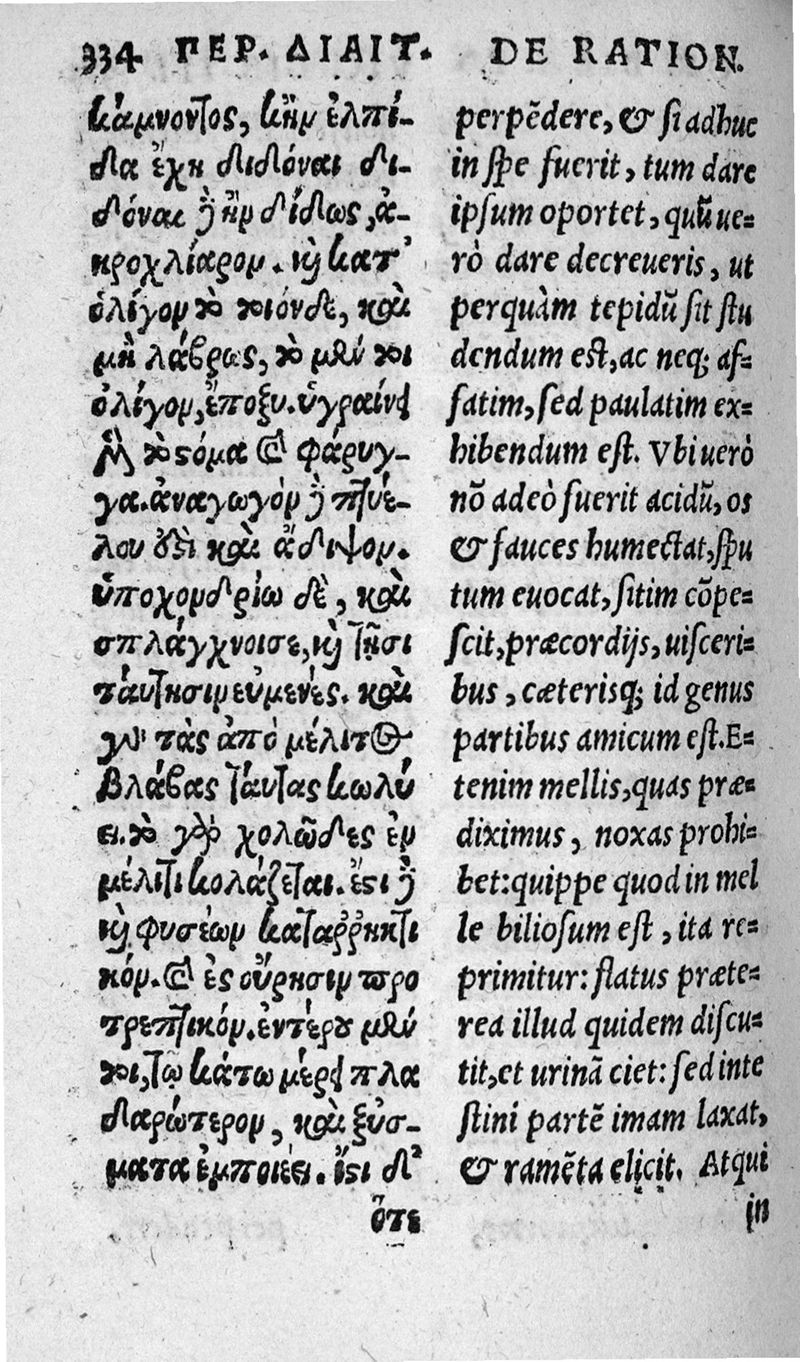 334 ΠΕΡ. ΔΙΑΙΤ.
κάμνοντος, κἢν ἐλπί-
δα ἔχῃ διδόναι δι-
δόναι ἢν δίδως, ἀ-
κροχλίαρον. καὶ κατ'
ὀλίγον τὸ τοιόνδε, καὶ
μὴ λάβρως, τὸ μὲν τοι
ὀλίγον, ἔποξυ. ὑγραίνει
μὲν τὸ στόμα καὶ φάρυγ-
γα. ἀναγωγὸν πτυέ-
λου ἐστὶ καὶ ἄδιψον.
ὑποχονδρίῳ δὲ, καὶ
σπλάγχνοισι, καὶ τῇσι
ταύτῃσιν εὐμενές. καὶ
τὰς ἀπὸ μέλιτος
βλάβας ταύτας κωλύ
ει. τὸ γὰρ χολῶδες ἐν
μέλιτι κολάζεται. ἔστι
καὶ φυσέων καταῤῥηκτι
κόν. καὶ ἐς οὔρησιν προ
τρεπτικόν. ἐντέρου μὲν
τοι, τῷ κάτω μέρει πλα
δαρώτερον, καὶ ξύσ-
ματα ἐμποιέει. ἔστι δ'
ὅτε
DE RATION.
perpēdere, & si adhuc
in spe fuerit, tum dare
ipsum oportet, quũ ue=
rò dare decreueris, ut
perquàm tepidũ sit stu
dendum est, ac neq; af=
fatim, sed paulatim ex=
hibendum est. Vbi uerò
nõ adeò fuerit acidũ, os
& fauces humectat, spu
tum euocat, sitim cõpe=
scit, præcordijs, uisceri=
bus, cæterisq; id genus
partibus amicum est. E=
tenim mellis, quas præ=
diximus, noxas prohi=
bet: quippe quod in mel
le biliosum est, ita re=
primitur: flatus præte=
rea illud quidem discu=
tit, et urinã ciet: sed inte
stini partē imam laxat,
& ramēta elicit. Atqui
in